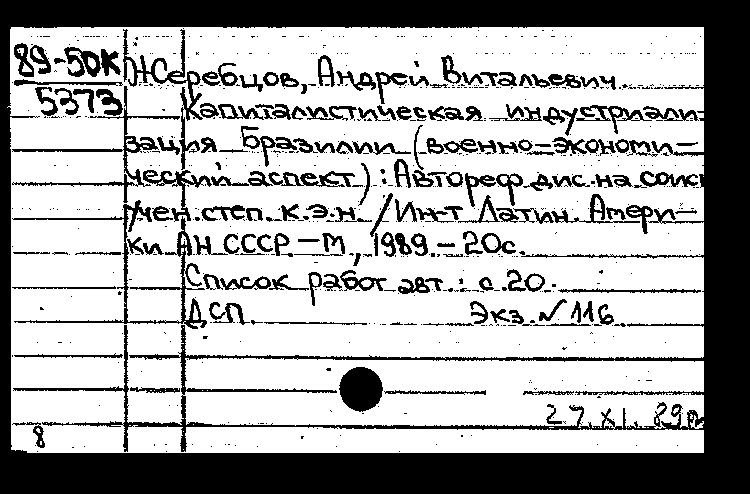 89-50К Жеребцов, Андрей Витальевич.
5373 Капиталистическая индустриали-
зация Бразилии (военно-экономи-
ческий аспект) : Автореф дис. на соиск
учен. степ. к.э.н. / Ин-т Латин. Амери-
ки АН СССР. - М, 1989. - 20с.
Список работ авт. : с.20.
ДСП. Экз. № 116.
27.XI.89
8